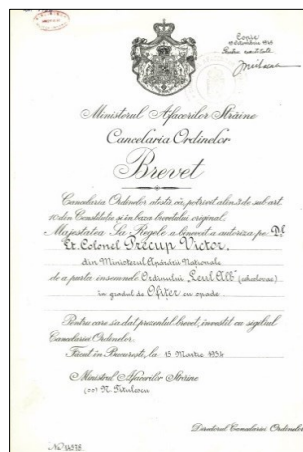 Copie
Ministerul Afacerilor Străine
Cancelaria Ordinelor
Brevet
Cancelaria Ordinelor atestă că, potrivit alin. 3 de sub art.
10 din Constituție și în baza brevetului original,
Majestatea Sa Regele a binevoit a autoriza pe Dl
Lt. Colonel Precup Victor,
din Ministerul Apărării Naționale
de a purta insemnele Ordinului „Leul Alb”
în gradul de Ofițer cu spade
Pentru care s'a dat prezentul brevet, investit cu sigiliul
Cancelariei Ordinelor.
Făcut în București, la 15 Martie 1934
Ministrul Afacerilor Străine
(ss) N. Titulescu
Directorul Cancelariei Ordinelor